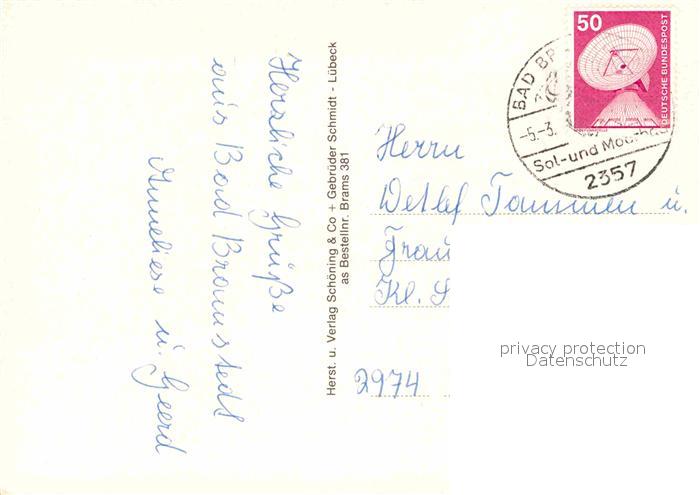 Herzliche Grüße
aus Bad Bramstedt
Anneliese u. Geerd
Herst. u. Verlag Schöning & Co + Gebrüder Schmidt - Lübeck
as Bestellnr. Brams 381
50
DEUTSCHE BUNDESPOST
BAD BR
-6.-3.
Sol- und Moorba
2357
Herrn
Detlef Tammen u.
Frau
Kl. S
2974
privacy protection
Datenschutz